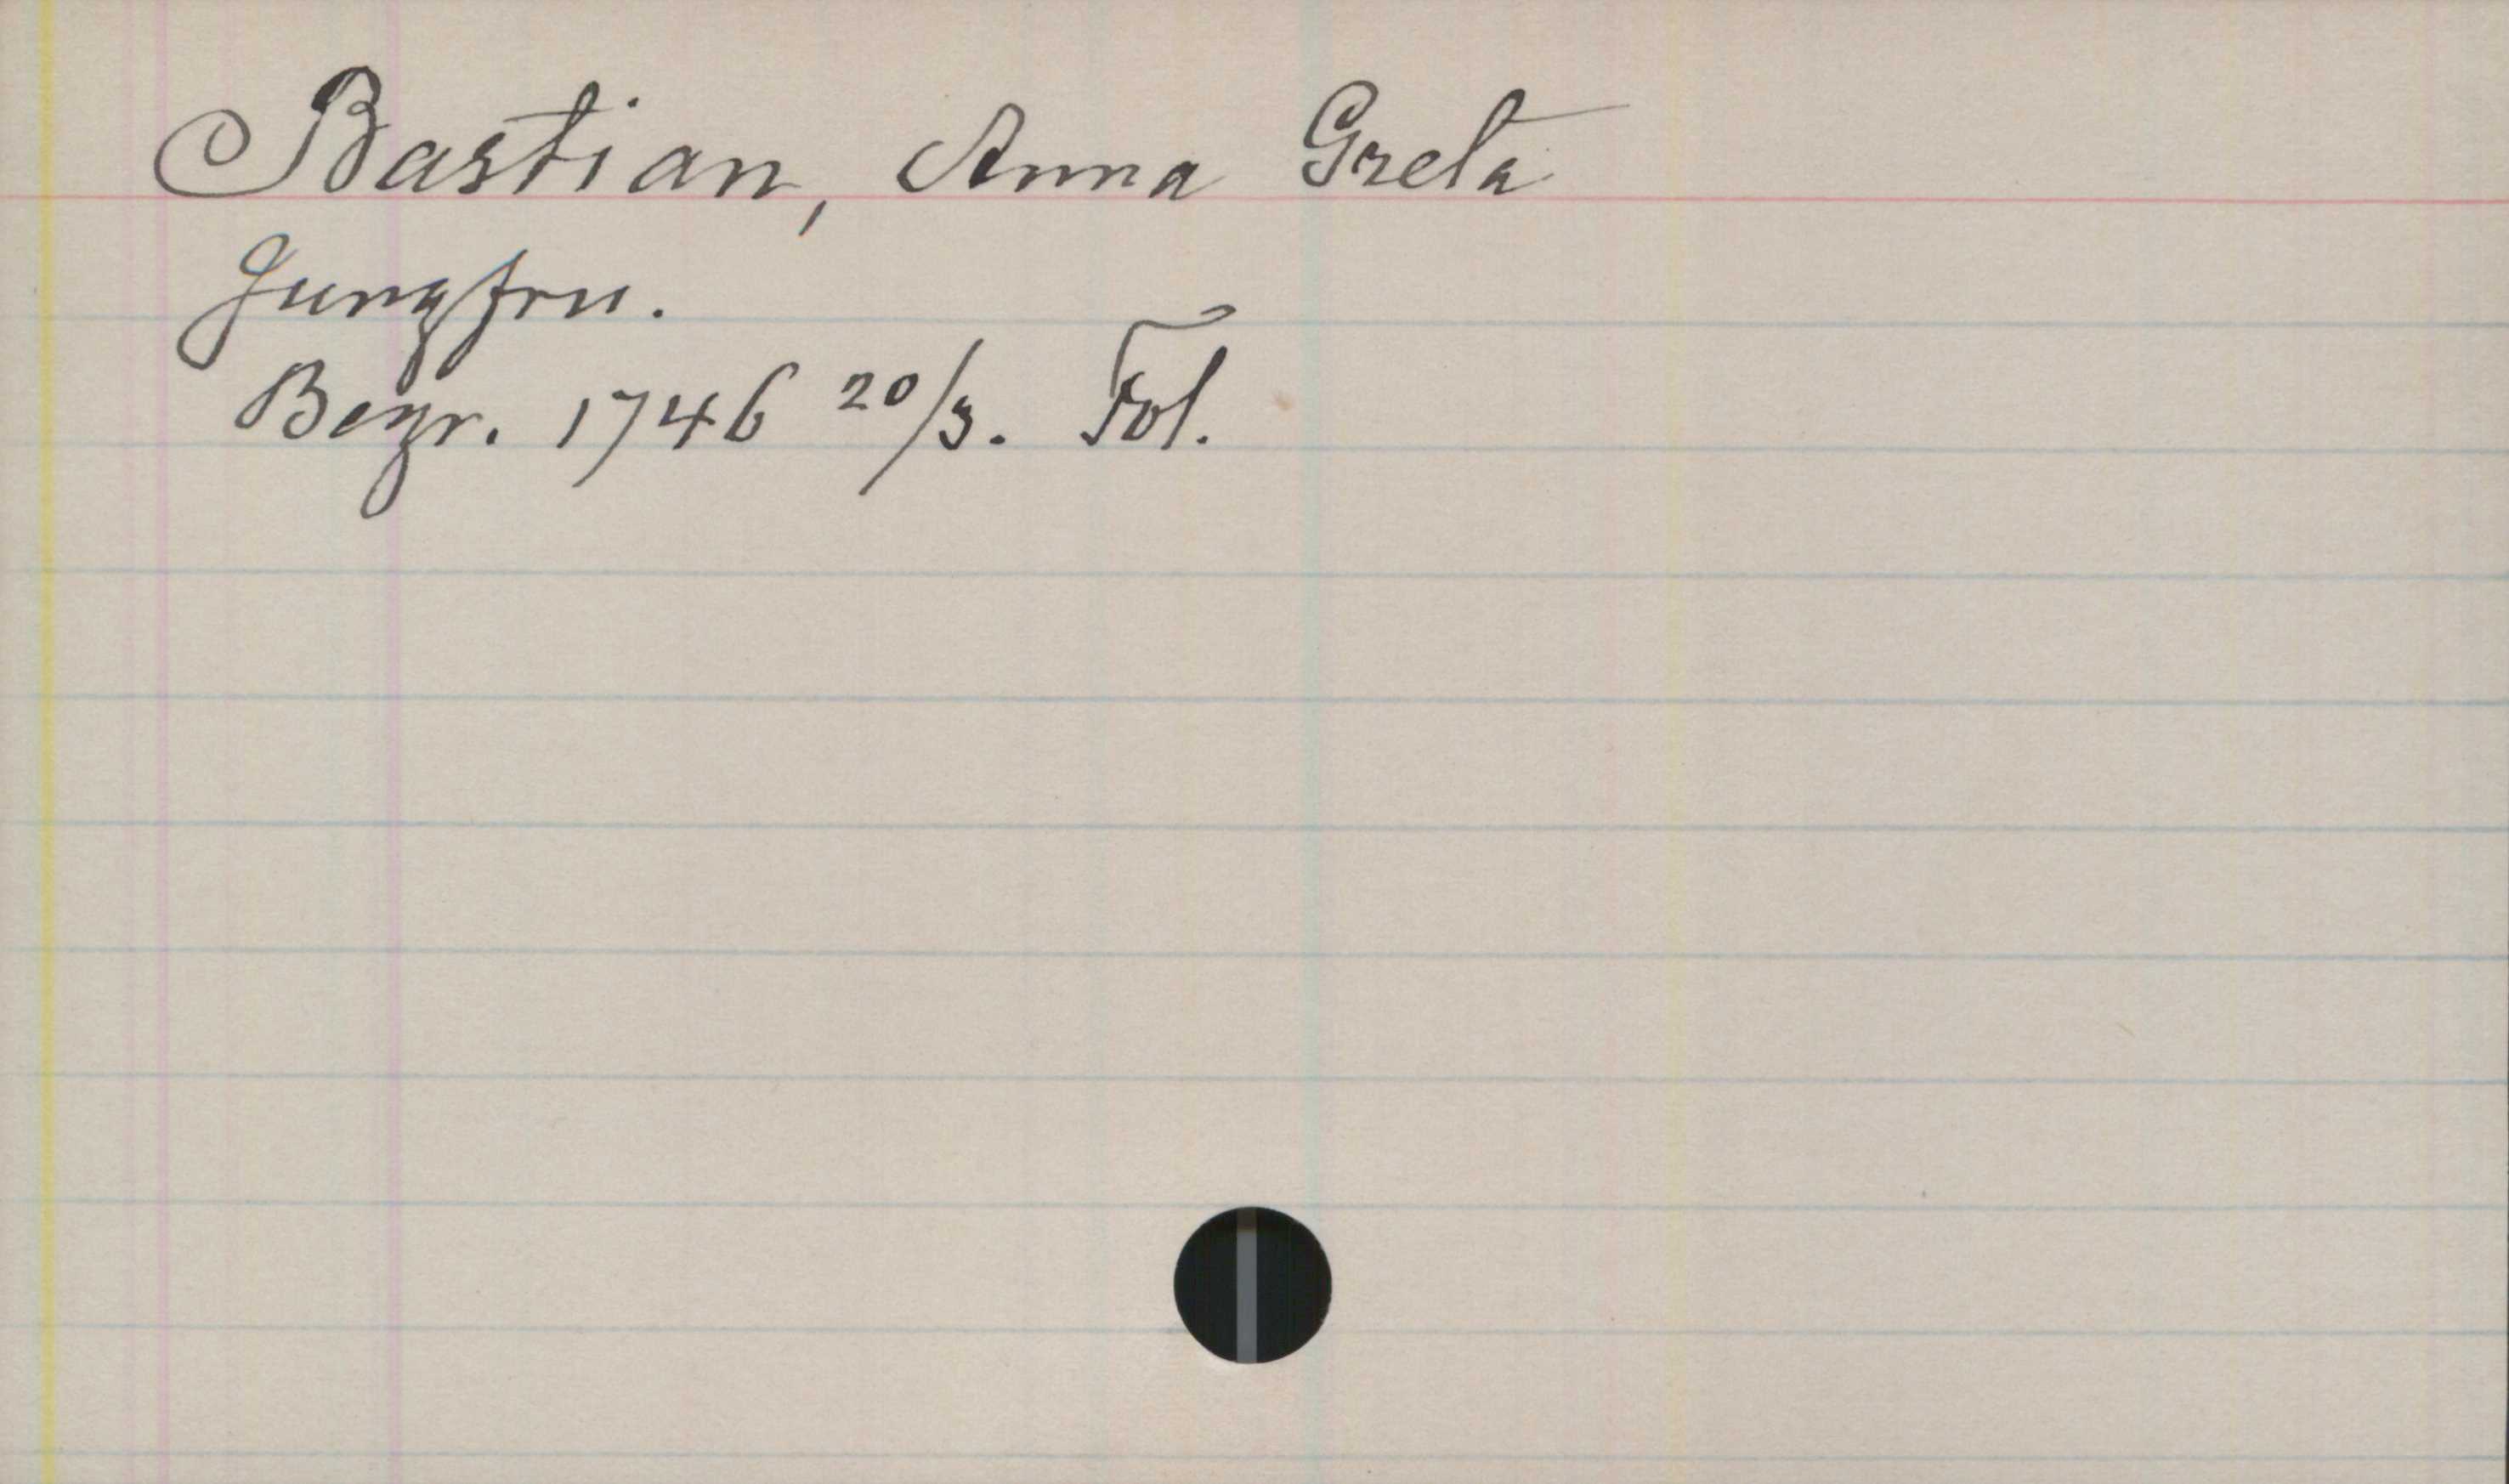 Bastian, Anna Greta
Jungfru.
Begr. 1746 20/3. Fol.